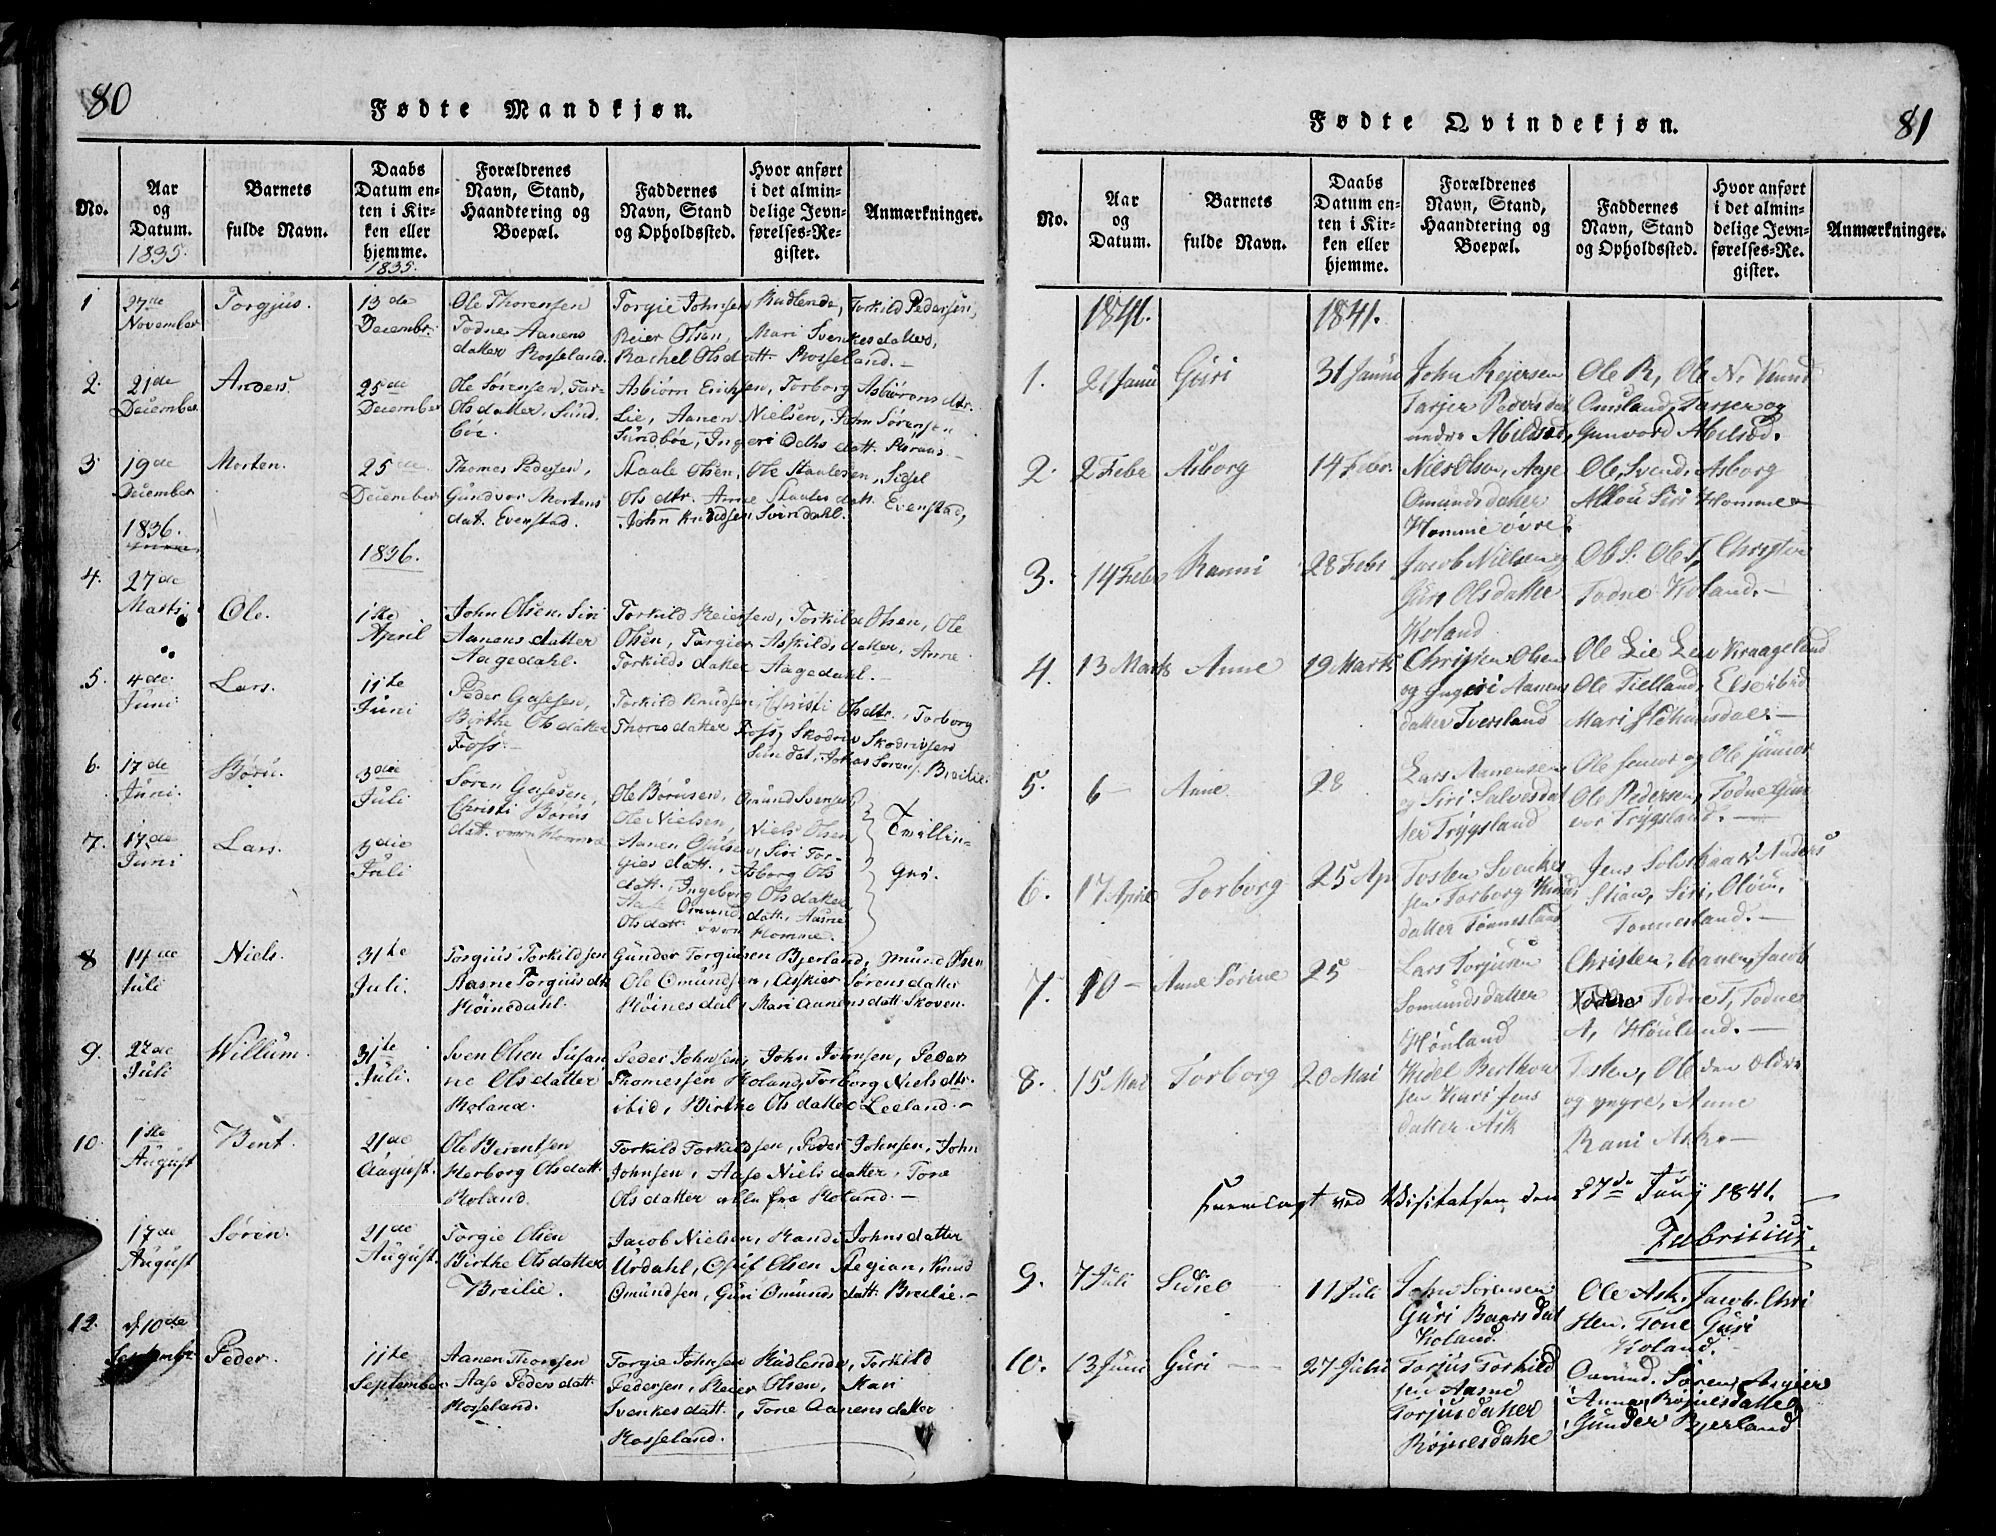 80
Fødte Mandkjøn.
No.
Aar
og
Datum.
1835.
Barnets
fulde Navn.
Daabs
Datum en-
ten i Kir-
ken eller
hjemme.
1835.
Forældrenes
Navn, Stand,
Haandtering og
Boepæl.
Faddernes
Navn, Stand
og Opholdssted.
Hvor anført
i det almin-
delige Jevn-
førelses-Re-
gister.
Anmærkninger.
1
27de
November
Torgjus.
13de
Decembr.
Ole Thorensen
Todne Aanens
datter Rosseland.
Torgie Johnsen Kudlende, Torkild Pedersen,
Reier Olsen, Mari Svenkesdatter,
Rachel Olsdatt. Rosseland.
2.
21de
December
Anders.
25de
December
Ole Sørensen, Tar-
Olsdatter, Sund-
bøe.
Asbiørn Erichsen, Torborg Asbiørens dtr.
Lie, Aanen Nielsen, John Sørensen
Sundbøe, Ingeri
3
19de
December
Morten.
25de
December
Thomes Pedersen,
Gundvor Mortens
dat. Evenstad.
Staale Olsen, Ole Staalesen, Sigel
Olsdtr. Anne Staalesdatt. Evenstad,
John Knudsen Svindahl.
1836.
1836.
4.
27de
Marts
Ole.
1ste
April
John Olsen, Siri
Aanensdatter
Aagedahl.
Torkild Reiersen, Torkild Olsen, Ole
Olsen, Torgier Askildsdatter, Anne
Torkildsdatter Aagedahl.
5.
4de
Juni
Lars.
11te
Juni
Peder Gasesen,
Birthe Olsdatter
Foss.
Torkild Knudsen, Christi Olsdtr., Torborg
Thoresdatter Foss, Skodrin Skodrinsen
Sundat, Johas Sørens. Breilie.
6.
17de
Juni.
Børu.
3die
Juli
Søren Gasesen,
Christi Børus
datt. Homme
Ole Børusen, Omund Svensen,
Ole Nielsen, Niels Olsen,
Tvillin-
7.
17de
Juni
Lars.
3die
Juli
Aanen Olsen, Siri Tor-
gies datt., Asborg Ols
datt., Ingeborg Olsdatter
Aase Omundsdatt., Aasne
Olsdatt. Homme.
ger.
8
14de
Juli
Niels.
31te
Juli.
Torgius Torkildsen
Aasne Torgiusdtr.
Høinedahl.
Gunder Torgiusen Bjerland, Omund Olsen
Ole Omundsen, Askier Sørensdatter
Høinesdal, Mari Aanensdatt. Skoven.
9.
22de
Juli
Willum.
31te
Juli.
Sven Olsen Susan
ne Olsdatter
Koland.
Peder Johnsen, John Johnsen, Peder
Thomessen Koland, Torborg Nielsdtr.
ibid, Birthe Olsdatter Leeland.
10.
1ste
August
Bent.
21de
August.
Ole Berentsen
Herborg Olsdatt.
Koland.
Torkild Torkildsen, Peder Johnsen, John
Johnsen, Aase Nielsdatter, Tone
Olsdatter alle fra Koland.
17de
August
Søren.
21de
August.
Torgie Olsen
Birthe Olsdatter
Breilie.
Jacob Nielsen, Randi Johnsdatter
Urdahl, Osuf Olsen Regian, Knud
Omundsen, Guri Omundsdatt. Breilie.
12.
d. 10de
September
Peder.
11te
September
Aanen Thorsen
Aase Pedersdatt.
Rosseland.
Torgie Johnsen Kudlende, Torkild
Pedersen, Reier Olsen, Mari
Svenkesdatt., Tone Aanensdatter
Rosseland.
81
Fødte Qvindekjøn.
No.
Aar
og
Datum.
Barnets
fulde Navn.
Daabs
Datum en-
ten i Kir-
ken eller
hjemme.
Forældrenes
Navn, Stand,
Haandtering og
Boepæl.
Faddernes
Navn, Stand
og Opholdssted.
Hvor anført
i det almin-
delige Jevn-
førelses-Re-
gister.
Anmærkninger.
1841.
1841.
1.
21 Janu
Guri
31 Janu
John Reiersen
Tarjer Pedersdat
nedre Abilsød,
Ole R, Ole N, Knud
Omsland, Tarjer og
Gunvord Abilsød.
2.
2 Febr
Asborg
14 Febr.
Niels Olsen, Aase
Omundsdatter
Homme øvre
Ole, Svend, Asborg
Siri Homme
3.
14 Febr
Ranni
28 Febr
Jacob Nielsen og
Guri Olsdatter
Koland
Ole S. Ole T, Christen
Todne Koland.
4.
13 Marts
Anne
19 Marts
Christen Olsen
og Ingeri Aanens
datter Tversland
Ole Lie Lev Kraageland
Ole Tielland, Else ibid
Mari
5.
6 —
Anne
28
Lars Aanensen
og Siri Salvesdat
ter Trygsland
Ole senior og Ole junior
Ole Pedersen, Todne Gun
vor Trygsland.
6.
17 April
Torborg
25 Ap
Tosten Svenkes
sen Torborg Knuds
datter Tønnesland
Jens Anders
Stian, Siri, Oløu,
Tonnesland.
7.
10 —
Anne Sørine
25
Lars Torjusen
Somundsdatter
Høuland
Christen, Aanen, Jacob
Todne T, Todne
A, Høuland.
8.
15 Mai
Torborg
20 Mai
Kidel Berthou
sen Kari Jens
datter Ask
Tosten, Ole den ældre
og yngre, Anne
Rani Ask.
Fremlagt ved Visitatsen den 27de Juny 1841.
Fabricius.
9.
7 Juli
Sidsel
11 Juli
John Sørensen
Guri Baarsdat
Koland.
Ole Ask, Jacob, Chri
sten, Tone Guri
Koland.
10.
13 Juni
Guri
27 Juni
Torjus Torkild
sen Aasne
Torjusdatter
Røjnesdahl
Omund, Søren, Asgjer
Anna Røjnesdatter,
Gunder Bjerland